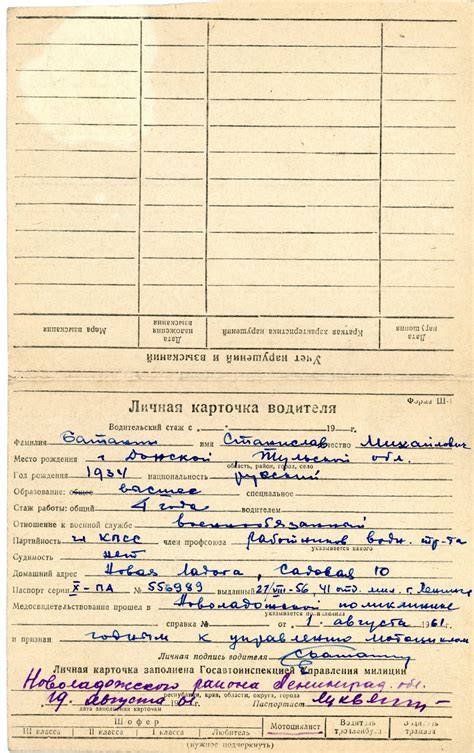 Мера взыскания
Дата наложения взыскания
Краткая характеристика нарушения
Дата нарушения
Учет нарушений и взысканий
Форма Ш-
Личная карточка водителя
Водительский стаж с „ - „ 19 — г.
Фамилия имя Станислав отчество Михайлович
Место рождения г Донской Тульской обл.
область, район, город, село
Год рождения 1934 национальность русский
Образование: общее высшее специальное
Стаж работы: общий 4 года водителем
Отношение к военной службе военнообязанный
Партийность чл КПСС член профсоюза работников водн. тр-та
указывается какого
Судимость нет
Домашний адрес Новая Ладога, Садовая 10
Паспорт серии X-ПА № 556989 выданный 27/VIII-56 41 отд. мил. г.
указывается кем и когда
Медосвидетельствование прошел в Новоладожской поликлинике
справка № от „1 августа 1961 г.
и признан годным к управлению мотоциклом
Личная подпись водителя
Личная карточка заполнена Госавтоинспекцией Управления милиции
Новоладожского района Ленинград. обл.
республики, края, области, округа, города
19 августа 61 Паспортист
дата заполнения карточки
Шофер
III класса II класса I класса Любитель Мотоциклист Водитель троллейбуса Водитель трамвая
(нужное подчеркнуть)